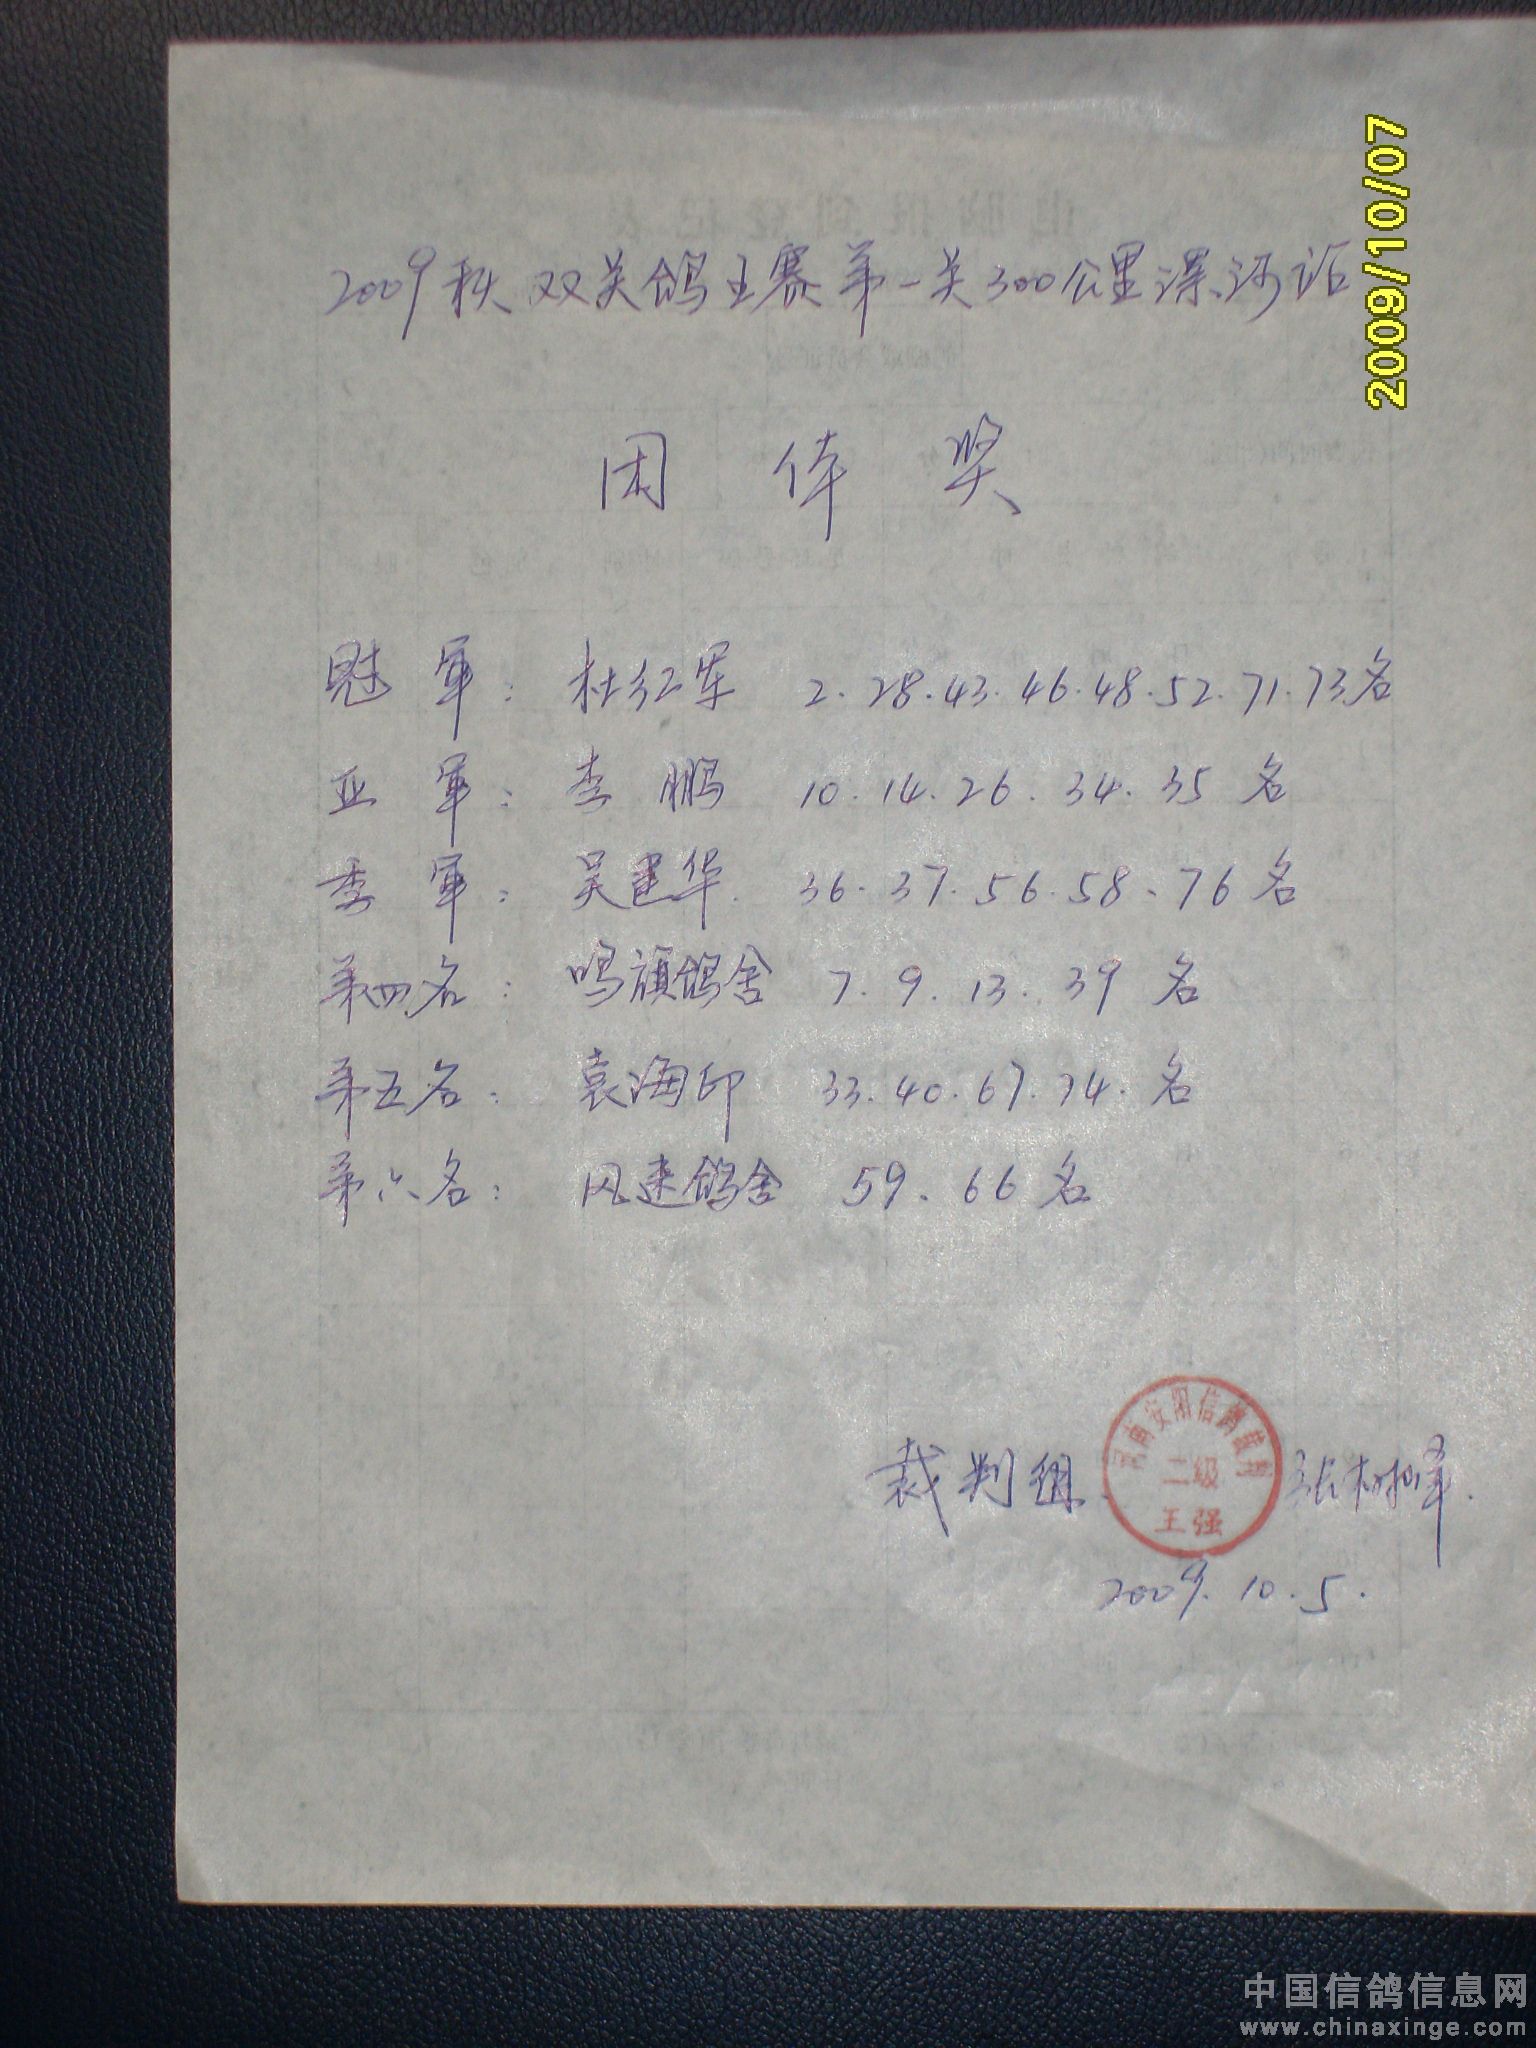 2009/10/07
2009秋双关鸽王赛第一关300公里漯河站
团体奖
冠军：杜红军 2.28.43.46.48.52.71.73名
亚军：李鹏 10.14.26.34.35名
季军：吴建华 36.37.56.58.76名
第四名：鸣 鸽舍 7.9.13.39名
第五名：袁海印 33.40.67.74.名
第六名：风速鸽舍 59.66名
裁判组 张树峰
河南安阳信鸽裁判
二级
王强
2009.10.5.
中国信鸽信息网
www.chinaxinge.com